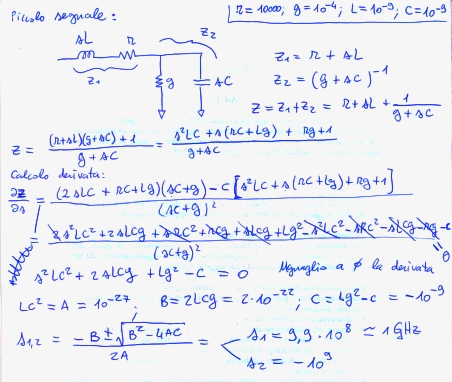 Piccolo segnale:
r = 10000; g = 10⁻⁴; L = 10⁻⁹; C = 10⁻⁹
sL r z₂
z₁ g sC
z₁ = r + sL
z₂ = (g + sC)⁻¹
z = z₁ + z₂ = r + sL + 1/(g + sC)
z = ((r+sL)(g+sC) + 1)/(g + sC) = (s²LC + s(rC + Lg) + rg + 1)/(g+sC)
Calcolo derivata:
∂z/∂s = ((2sLC + rC + Lg)(sC+g) − C[s²LC + s(rC + Lg) + rg + 1])/(sC+g)²
= (2s²LC² + 2sLCg + srC² + rCg + sLCg + Lg² − s²LC² − srC² − sLCg − rCg − C)/(sC+g)² = 0
s²LC² + 2sLCg + Lg² − C = 0 Uguaglio a 0 la derivata
LC² = A = 10⁻²⁷; B = 2LCg = 2·10⁻²²; C = Lg² − C = −10⁻⁹
s₁,₂ = (−B ± √(B² − 4AC))/2A = s₁ = 9,9·10⁸ ≃ 1 GHz
s₂ = −10⁹